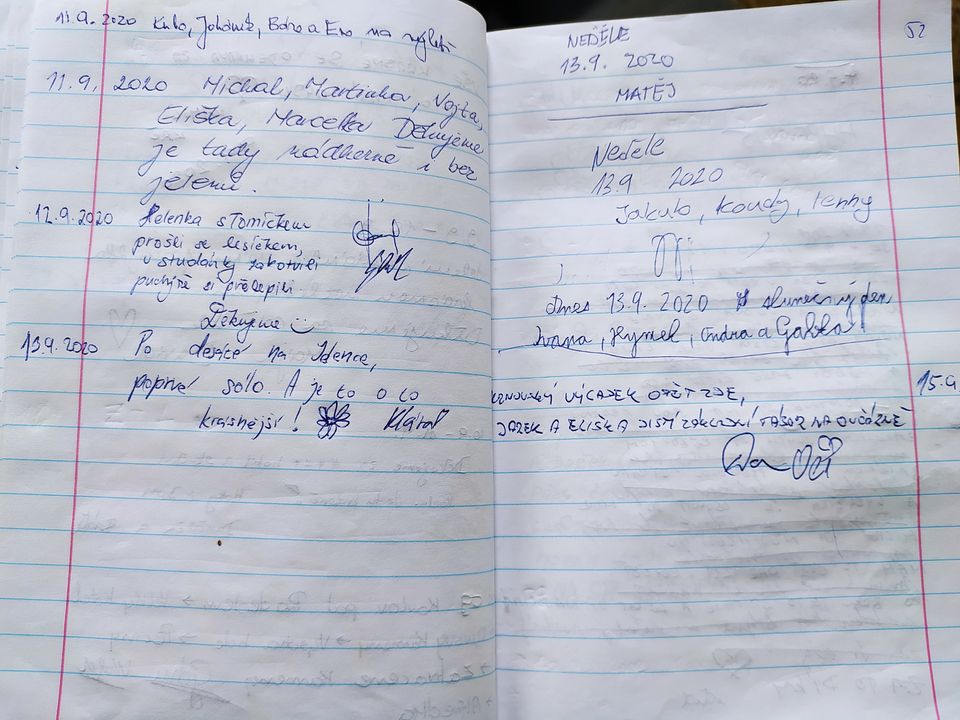 11.9.2020 Kuba, Johanka, Bára a Ema na výletě
11.9, 2020 Michal, Martinka, Vojta,
Eliška, Marcelka Děkujeme
je tady nádherně i bez
jelena.
12.9.2020 Helenka s Tomíčkem
prošli se lesíčkem,
u studánky zakotvili
puchýře si přelepili
Děkujeme
13.9.2020 Po desáté na Idence,
poprvé sólo. A je to o to
krásnější! Klára
52
NEDĚLE
13.9. 2020
MATĚJ
Neděle
13.9 2020
Jakub, koudy, lenny
dnes 13.9. 2020 slunečný den
Ivana, Hynel, Ondra a Gabka
VÝSADEK OPĚT ZDE, 15.9.
A ELIŠKA JISTÍ ZÁKLADNÍ TÁBOR NA